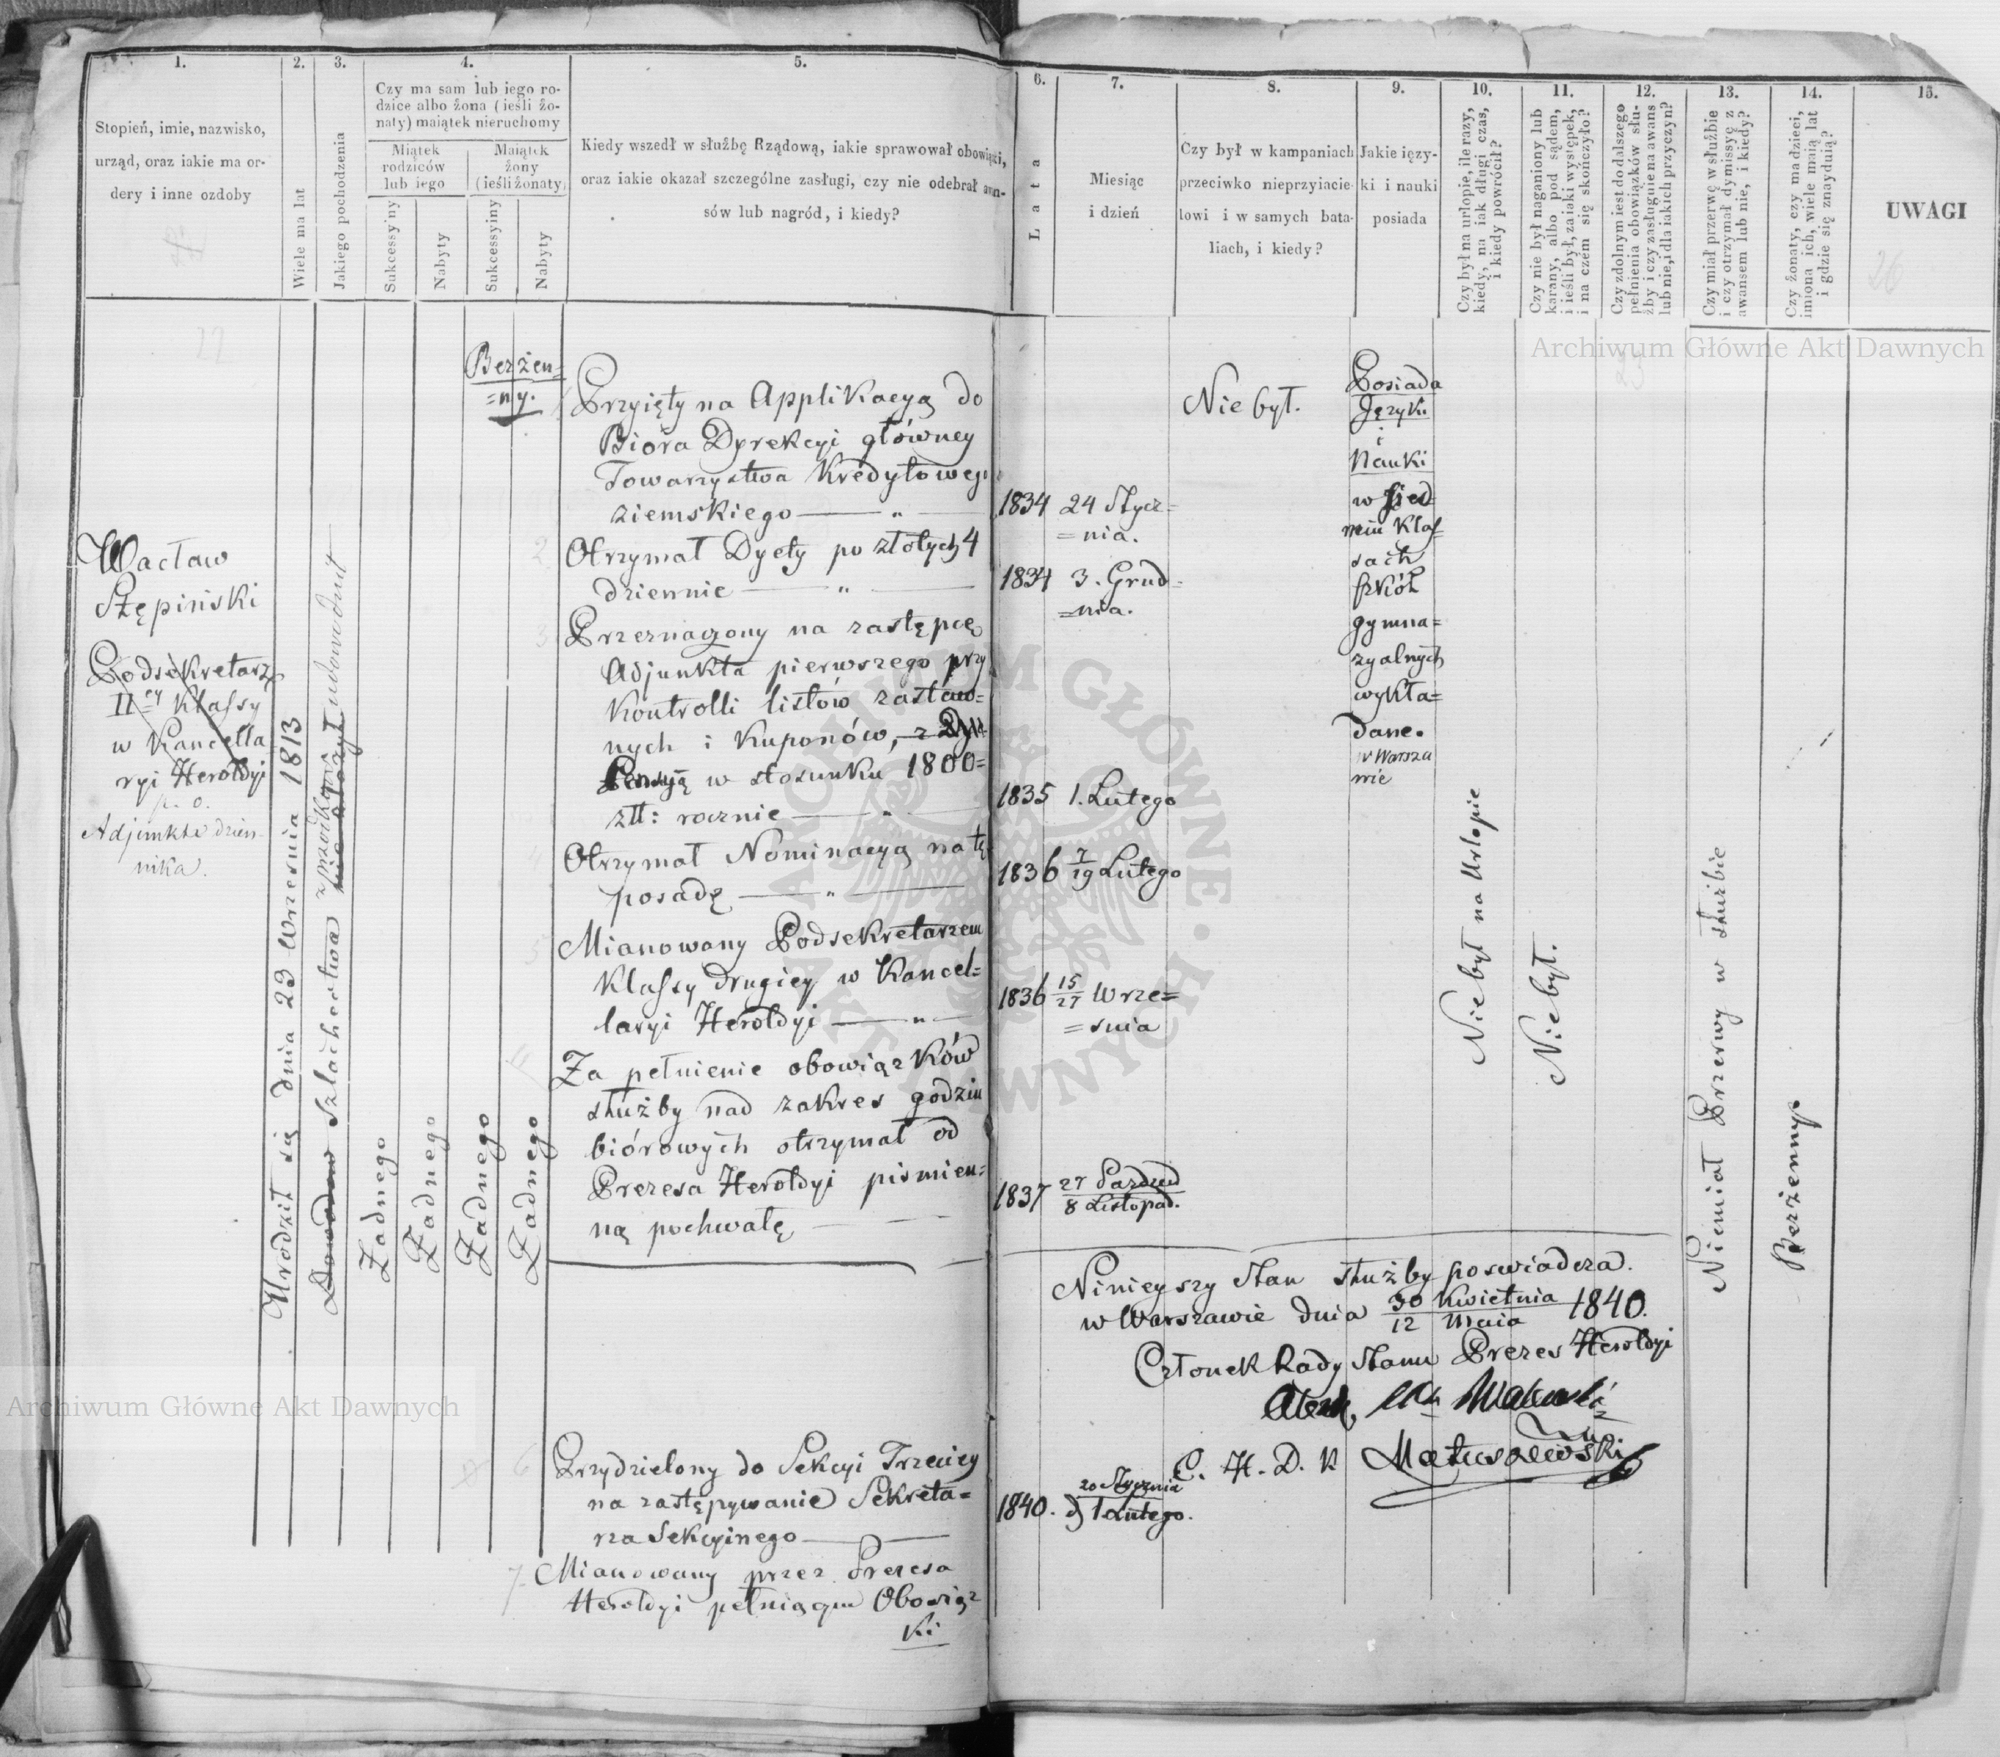 1.
Stopień, imie, nazwisko,
urząd, oraz iakie ma or-
dery i inne ozdoby
2.
Wiele ma lat
3.
Jakiego pochodzenia
4.
Czy ma sam lub iego ro-
dzice albo żona (ieśli żo-
naty) maiątek nieruchomy
Miątek
rodziców
lub iego
Maiątek
żony
(ieśli żonaty)
Sukcessyiny
Nabyty
Sukcessyiny
Nabyty
5.
Kiedy wszedł w służbę Rządową, iakie sprawował obowiązki,
oraz iakie okazał szczególne zasługi, czy nie odebrał awan-
sów lub nagród, i kiedy?
6.
Lata
7.
Miesiąc
i dzień
8.
Czy był w kampaniach
przeciwko nieprzyiacie-
lowi i w samych bata-
liach, i kiedy?
9.
Jakie ięzy-
ki i nauki
posiada
10.
Czy był na urlopie, ile razy,
kiedy, na iak długi czas,
i kiedy powrócił?
11.
Czy nie był naganiony lub
karany, albo pod sądem,
i ieśli był, za iaki występek,
i na czem się skończyło?
12.
Czy zdolnym iest do dalszego
pełnienia obowiązków słu-
żby i czy zasługuie na awans
lub nie, i dla iakich przyczyn?
13.
Czy miał przerwę w służbie
i czy otrzymał dymissyę z
awansem lub nie, i kiedy?
14.
Czy żonaty, czy ma dzieci,
imiona ich, wiele maią lat
i gdzie się znayduią?
15.
UWAGI
22
26
23
Wacław
Stępiński
Podsekretarz
II-ey Klassy
w Kancella
ryi Heroldyi
p. o.
Adjunkta dzien-
nika.
Urodził się dnia 23 Września 1813
Dowodów Szlachectwa
nie złożył
udowodnił
Żadnego
Żadnego
Bezżen=
=ny.
Żadnego
Żadnego
Przyięty na Applikacyą do
Biόra Dyrekcyi główney
Towarzystwa Kredytowego
ziemskiego — " —
1834 24 Stycz=
=nia.
2 Otrzymał Dyety po złotych 4
dziennie — " —
1834 3. Grud=
=nia.
3 Przeznaczony na zastępcę
Adjunkta pierwszego przy
Kontrolli listów zastaw=
nych i Kuponów, z
Pensyą w stosunku 1800=
złł: rocznie — " —
1835 1. Lutego
Otrzymał Nominacyą na tę
posadę — " —
1836 7/19 Lutego
5 Mianowany Podsekretarzem
Klassy drugiey w Kancel=
laryi Heroldyi — " —
1836 15/27 Wrze=
=snia
Za pełnienie obowiązków
służby nad zakres godzin
biórowych otrzymał od
Prezesa Heroldyi piśmien=
ną pochwałę —
1837 27 Paźdzed
8 Listopad.
Nie był.
Posiada
Języki
i
Nauki
w Sied=
miu Klas=
sach
szkół
gymna=
zyalnych
wykła=
dane.
w Warsza
wie
Nie był na Urlopie
Nie był.
Niemiał Przerwy w służbie
Bezżenny
Ninieyszy Stan służby poswiadcza.
w Warszawie dnia 30 Kwietnia / 12 Maia 1840.
Członek Rady Stanu Prezes Heroldyi
Z. H. D. K Matuszewski
6 Przydzielony do Sekcyi Trzeciey
na zastępywanie Sekreta=
rza Sekcyinego —
1840. 20 Stycznia
d 1 Lutego.
7 Mianowany przez Prezesa
Heroldyi pełniącym Obowiąz
ki
Archiwum Główne Akt Dawnych
Archiwum Główne Akt Dawnych
ARCHIWUM GŁÓWNE AKT DAWNYCH